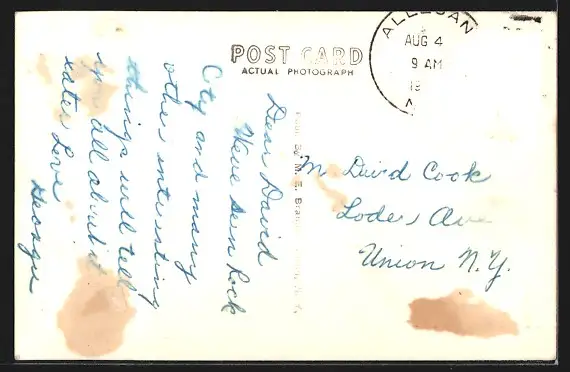 POST CARD
ACTUAL PHOTOGRAPH
ALLEGAN
AUG 4
9 AM
19
Dear David
Have seen Rock
City and many
other interesting
things will tell
you all about it
later Love
George
M. David Cook
Loder Ave
Union N.Y.